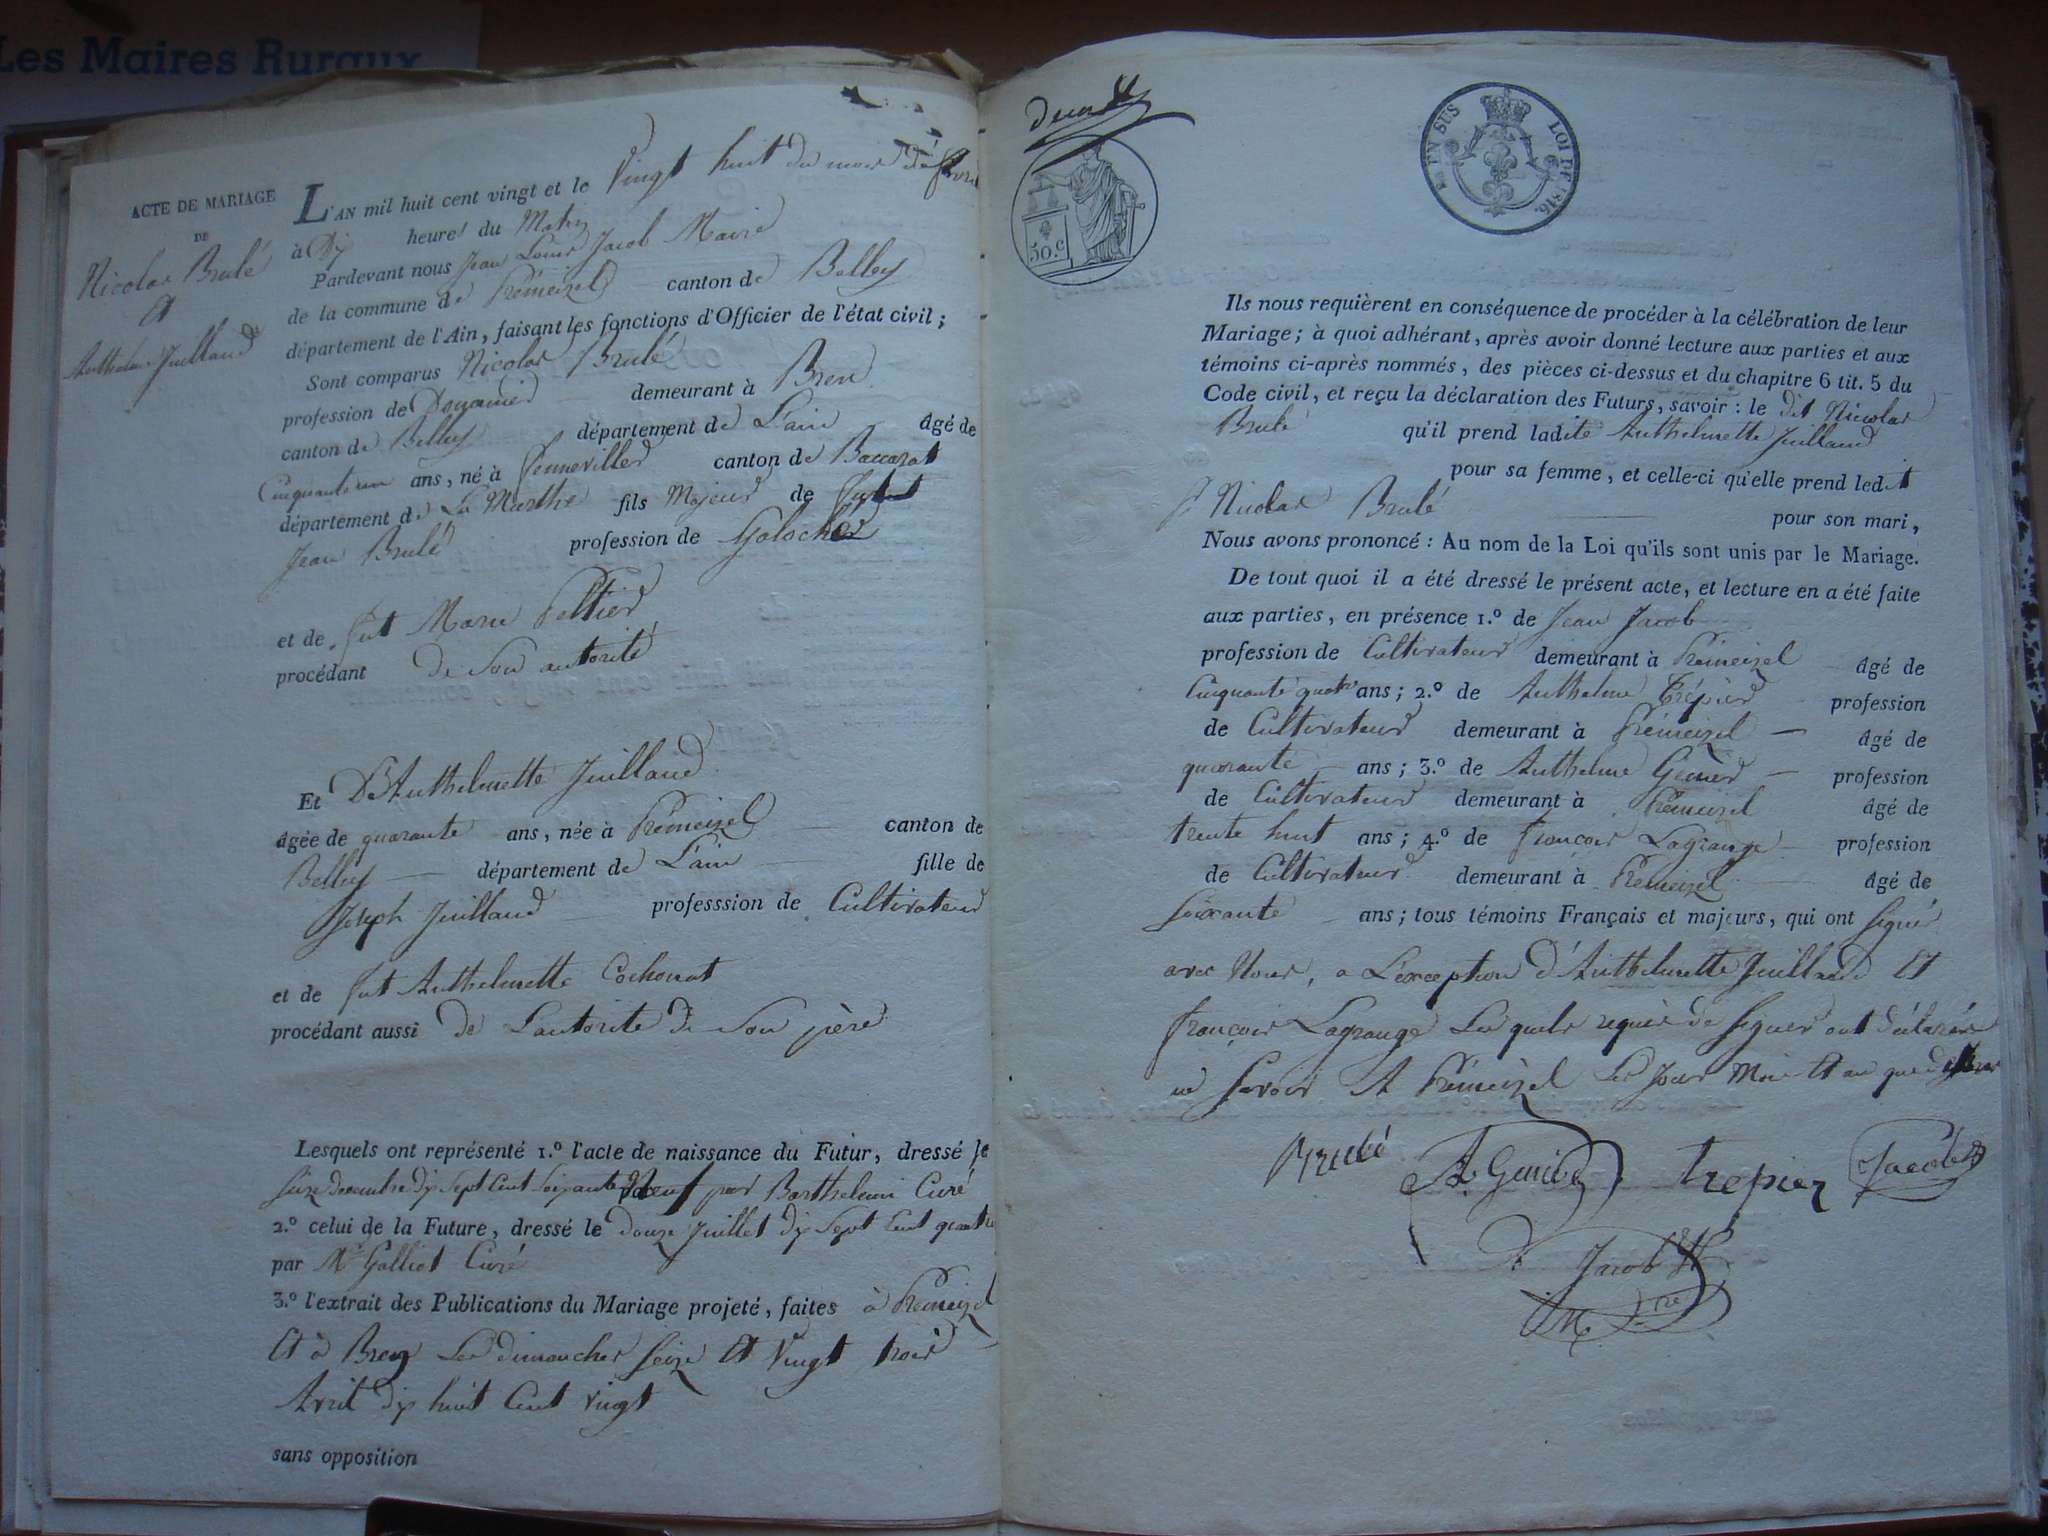 Les Maires Ruraux
ACTE DE MARIAGE
DE
Nicolas Brulé
Et
Anthelmette Juilland
L'AN mil huit cent vingt et le Vingt huit du mois d'Avril
à Dix heures du Matin
Pardevant nous Jean Louis Jacob Maire
de la commune de Prémeizel canton de Belley
département de l'Ain, faisant les fonctions d'Officier de l'état civil;
Sont comparus Nicolas Brulé
profession de Douanier demeurant à Bren
canton de Belley département de L'ain âgé de
Cinquante un ans, né à Fenneviller canton de Baccarat
département de La Murthe fils Majeur de fut
Jean Brulé profession de Galocher
et de fut Marie Peltier
procédant de Son autorité
Et De Anthelmette Juilland
âgée de quarante ans, née à Prémeizel canton de
Belley département de L'ain fille de
Joseph Juilland professsion de Cultivateur
et de fut Anthelmette Cochonat
procédant aussi de L'autorité de Son père
Lesquels ont représenté 1.º l'acte de naissance du Futur, dressé le
Seize decembre dix Sept Cent Soixante Neuf par Barthelemi Curé
2.º celui de la Future, dressé le douze Juillet dix Sept Cent quatre
par Mr Galliot Curé
3.º l'extrait des Publications du Mariage projeté, faites à Prémeizel
Et à Bren Les dimanches Seize Et Vingt trois
Avril dix huit Cent vingt
sans opposition
50.c
EN SUS LOI DE 1816.
Ils nous requièrent en conséquence de procéder à la célébration de leur
Mariage; à quoi adhérant, après avoir donné lecture aux parties et aux
témoins ci-après nommés, des pièces ci-dessus et du chapitre 6 tit. 5 du
Code civil, et reçu la déclaration des Futurs, savoir: le dit Nicolas
Brulé qu'il prend ladite Anthelmette Juilland
pour sa femme, et celle-ci qu'elle prend ledit
Nicolas Brulé pour son mari,
Nous avons prononcé: Au nom de la Loi qu'ils sont unis par le Mariage.
De tout quoi il a été dressé le présent acte, et lecture en a été faite
aux parties, en présence 1.º de Jean Jacob
profession de Cultivateur demeurant à Prémeizel âgé de
Cinquante quatre ans; 2.º de Anthelme Trépier profession
de Cultivateur demeurant à Prémeizel âgé de
quarante ans; 3.º de Anthelme Genier profession
de Cultivateur demeurant à Prémeizel âgé de
trente huit ans; 4.º de François Lagrange profession
de Cultivateur demeurant à Prémeizel âgé de
Soixante ans; tous témoins Français et majeurs, qui ont Signé
avec Nous, a L'exception d'Anthelmette Juilland Et
François Lagrange Les quels requis de Signer ont déclarés
ne Savoir A Prémeizel Les Jour Mois Et an que
Brulé
trepier
Jacob
Jacob